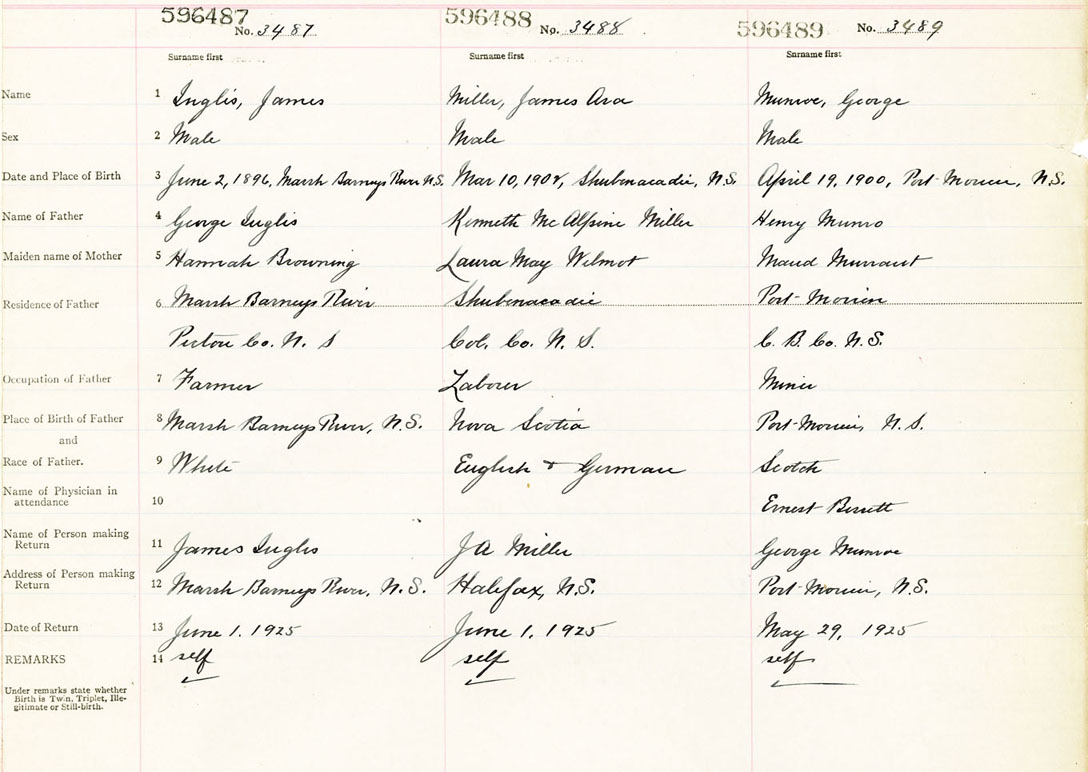 596487 No. 3487 596488 No. 3488 596489 No. 3489
Surname first Surname first Surname first
Name 1 Inglis, James Miller, James Asa Munroe, George
Sex 2 Male Male Male
Date and Place of Birth 3 June 2, 1896, Marsh Barneys River N.S. Mar 10, 1904, Shubenacadie, N.S. April 19, 1900, Port Morien, N.S.
Name of Father 4 George Inglis Kenneth Mc Alpine Miller Henry Munro
Maiden name of Mother 5 Hannah Browning Laura May Wilmot Maud
Residence of Father 6 Marsh Barneys River Shubenacadie Port Morien
Pictou Co. N. S Col. Co. N. S. C. B. Co. N.S.
Occupation of Father 7 Farmer Laborer Miner
Place of Birth of Father 8 Marsh Barneys River, N.S. Nova Scotia Port Morien, N.S.
and
Race of Father. 9 White English + German Scotch
Name of Physician in attendance 10 Ernest
Name of Person making Return 11 James Inglis J A Miller George Munroe
Address of Person making Return 12 Marsh Barneys River, N.S. Halifax, N.S. Port Morien, N.S.
Date of Return 13 June 1. 1925 June 1. 1925 May 29, 1925
REMARKS 14 self self self
Under remarks state whether
Birth is Twin, Triplet, Ille-
gitimate or Still-birth.